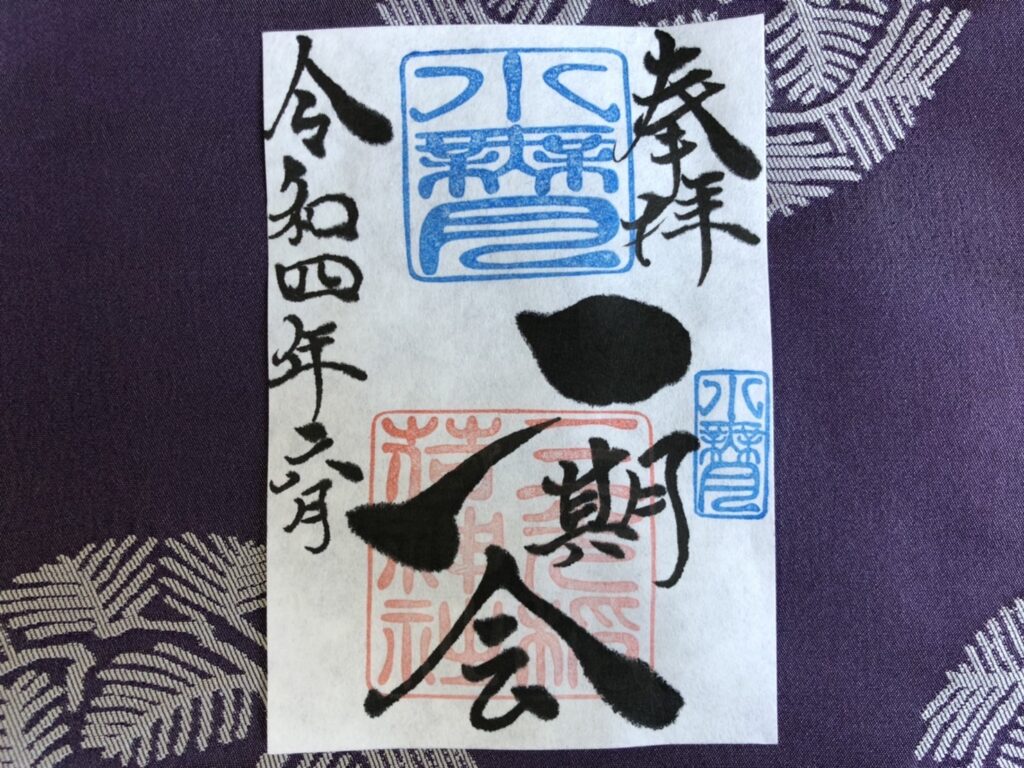 奉拝
水無月
一期一会
水無月
稲
荷神社
令和四年六月